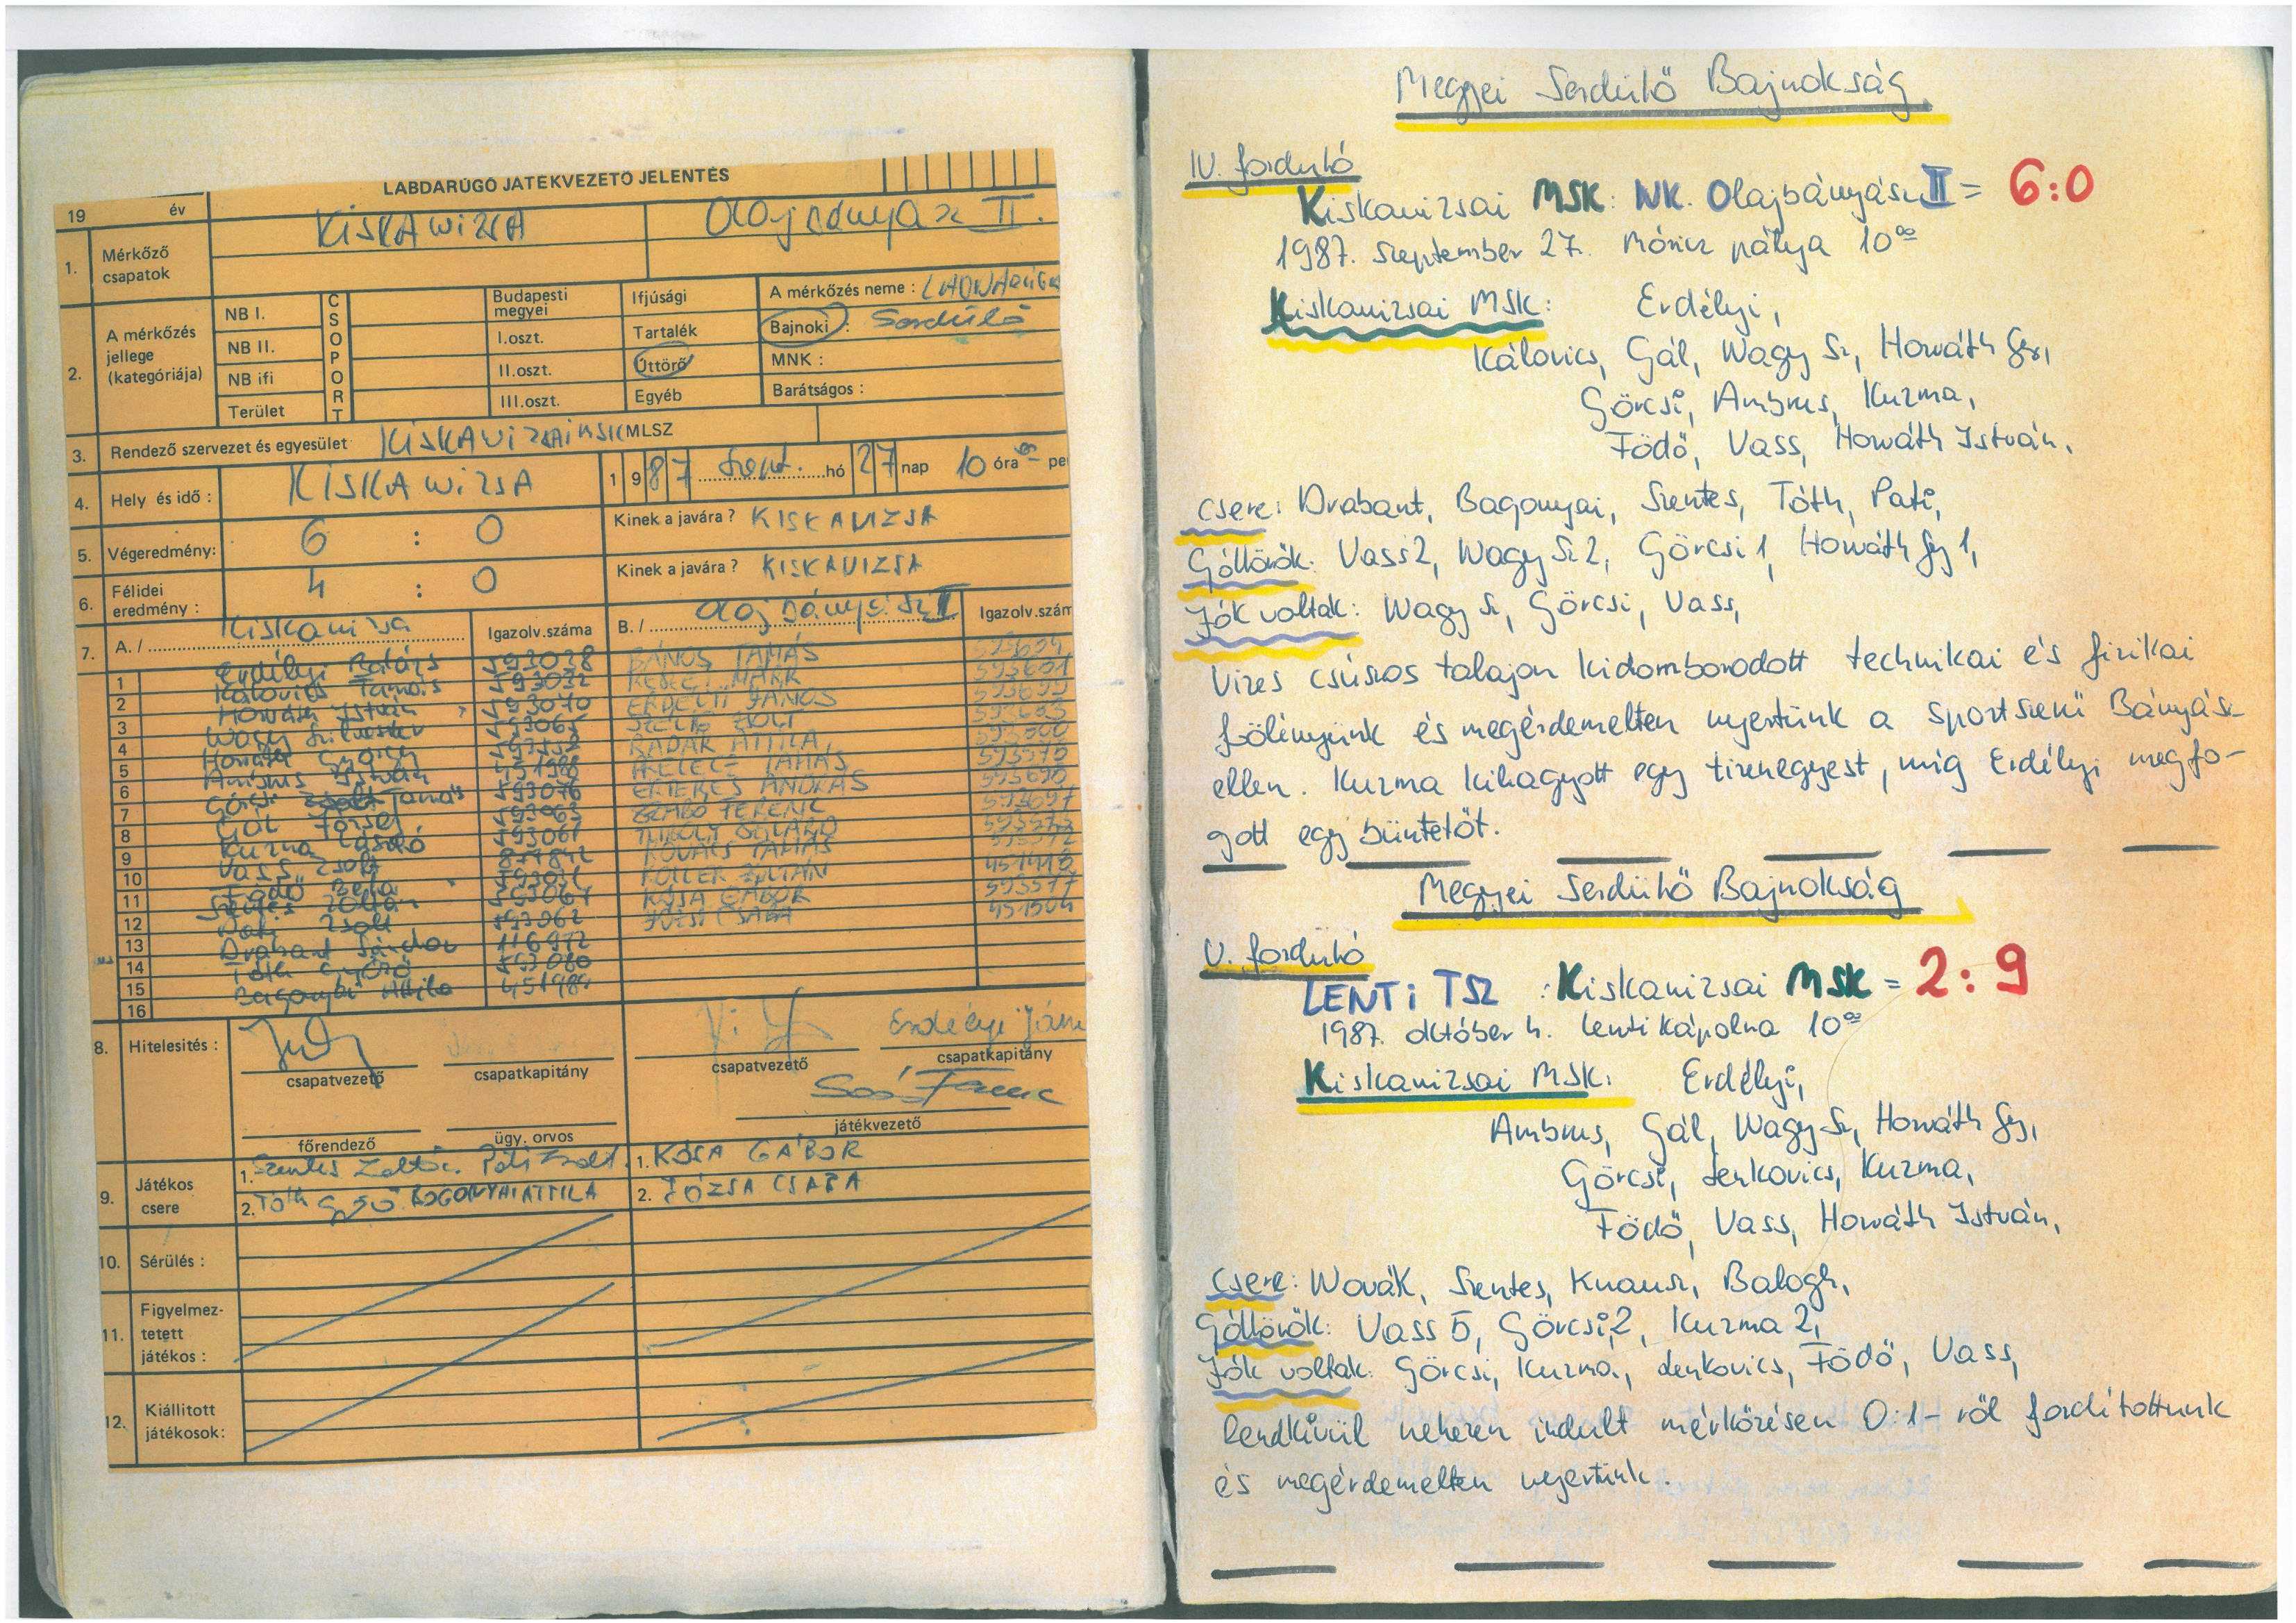 LABDARÚGÓ JÁTÉKVEZETŐ JELENTÉS
19 év
1. Mérkőző csapatok KISKAWIZSA Olajbányász II.
2. A mérkőzés jellege (kategóriája)
NB I.
NB II.
NB ifi
Terület
CSOPORT
Budapesti megyei
I.oszt.
II.oszt.
III.oszt.
Ifjúsági
Tartalék
Úttörő
Egyéb
A mérkőzés neme :
Bajnoki : Serdülő
MNK :
Barátságos :
3. Rendező szervezet és egyesület KISKAWIZSAI MSK MLSZ
4. Hely és idő : KISKAWIZSA 1987 Szept. hó 27 nap 10 óra 00 pe
5. Végeredmény: 6 : 0 Kinek a javára ? KISKAVIZSA
6. Félidei eredmény : 4 : 0 Kinek a javára ? KISKAVIZSA
7. A. / Kiskanizsa Igazolv.száma B. / Olajbányász II Igazolv.szám
1 Erdélyi Balázs 593028 BÁNOS TAMÁS
2 Kálovics Tamás
3 Horváth István 593070 ERDÉLYI JÁNOS
4 Wagy Szilveszter 593065
5 Horváth György RADAR ATTILA
6 Ambrus István 451988 TAMÁS
7 Görcsi Tamás 593076 ANDRÁS
8 Gál József 593063 SZABÓ FERENC
9 Kuzma László 593061
10 Vass Zsolt 877842 KOVÁCS TAMÁS
11 Födő Béla KOLLER ZOLTÁN
12 Szentes Zoltán 593067 KÓSA GÁBOR
13 Pati Zsolt 593062 JÓZSA CSABA
14 Drabant Sándor 116972
15 Tóth Győző 593080
16 Bagonyai Attila
8. Hitelesités :
csapatvezető csapatkapitány csapatvezető Erdélyi János csapatkapitány
Soós Ferenc
főrendező ügy. orvos játékvezető
9. Játékos csere
1. Szentes Zoltán Pati Zsolt 1. KÓSA GÁBOR
2. Tóth Győző BOGONYAI ATTILA 2. JÓZSA CSABA
10. Sérülés :
11. Figyelmez-
tetett
játékos :
12. Kiállitott
játékosok:
Megyei Serdülő Bajnokság
IV. forduló
Kiskanizsai MSK : NK. Olajbányász II = 6:0
1987. szeptember 27. Móricz pálya 10 00
Kiskanizsai MSK: Erdélyi,
Kálovics, Gál, Wagy Sz, Horváth Gy,
Görcsi, Ambrus, Kuzma,
Födő, Vass, Horváth István,
Csere: Drabant, Bagonyai, Szentes, Tóth, Pati,
Góllövők: Vass 2, Wagy Sz 2, Görcsi 1, Horváth Gy 1,
Jók voltak: Wagy Sz, Görcsi, Vass,
Vizes csúszos talajon kidomborodott technikai és fizikai
fölényünk és megérdemelten nyertünk a sportszerű Bányász
ellen. Kuzma kihagyott egy tizenegyest, mig Erdélyi megfo-
gott egy büntetőt.
Megyei Serdülő Bajnokság
V. forduló
LENTI TSZ : Kiskanizsai MSK = 2:9
1987. október 4. Lentikápolna 10 00
Kiskanizsai MSK: Erdélyi,
Ambrus, Gál, Wagy Sz, Horváth Gy,
Görcsi, Lenkovics, Kuzma,
Födő, Vass, Horváth István,
Csere: Wovák, Szentes, Knausz, Balogh,
Góllövők: Vass 5, Görcsi 2, Kuzma 2,
Jók voltak: Görcsi, Kuzma, Lenkovics, Födő, Vass,
Rendkivül nehezen indult mérkőzésen 0:1-ről forditottunk
és megérdemelten nyertünk.